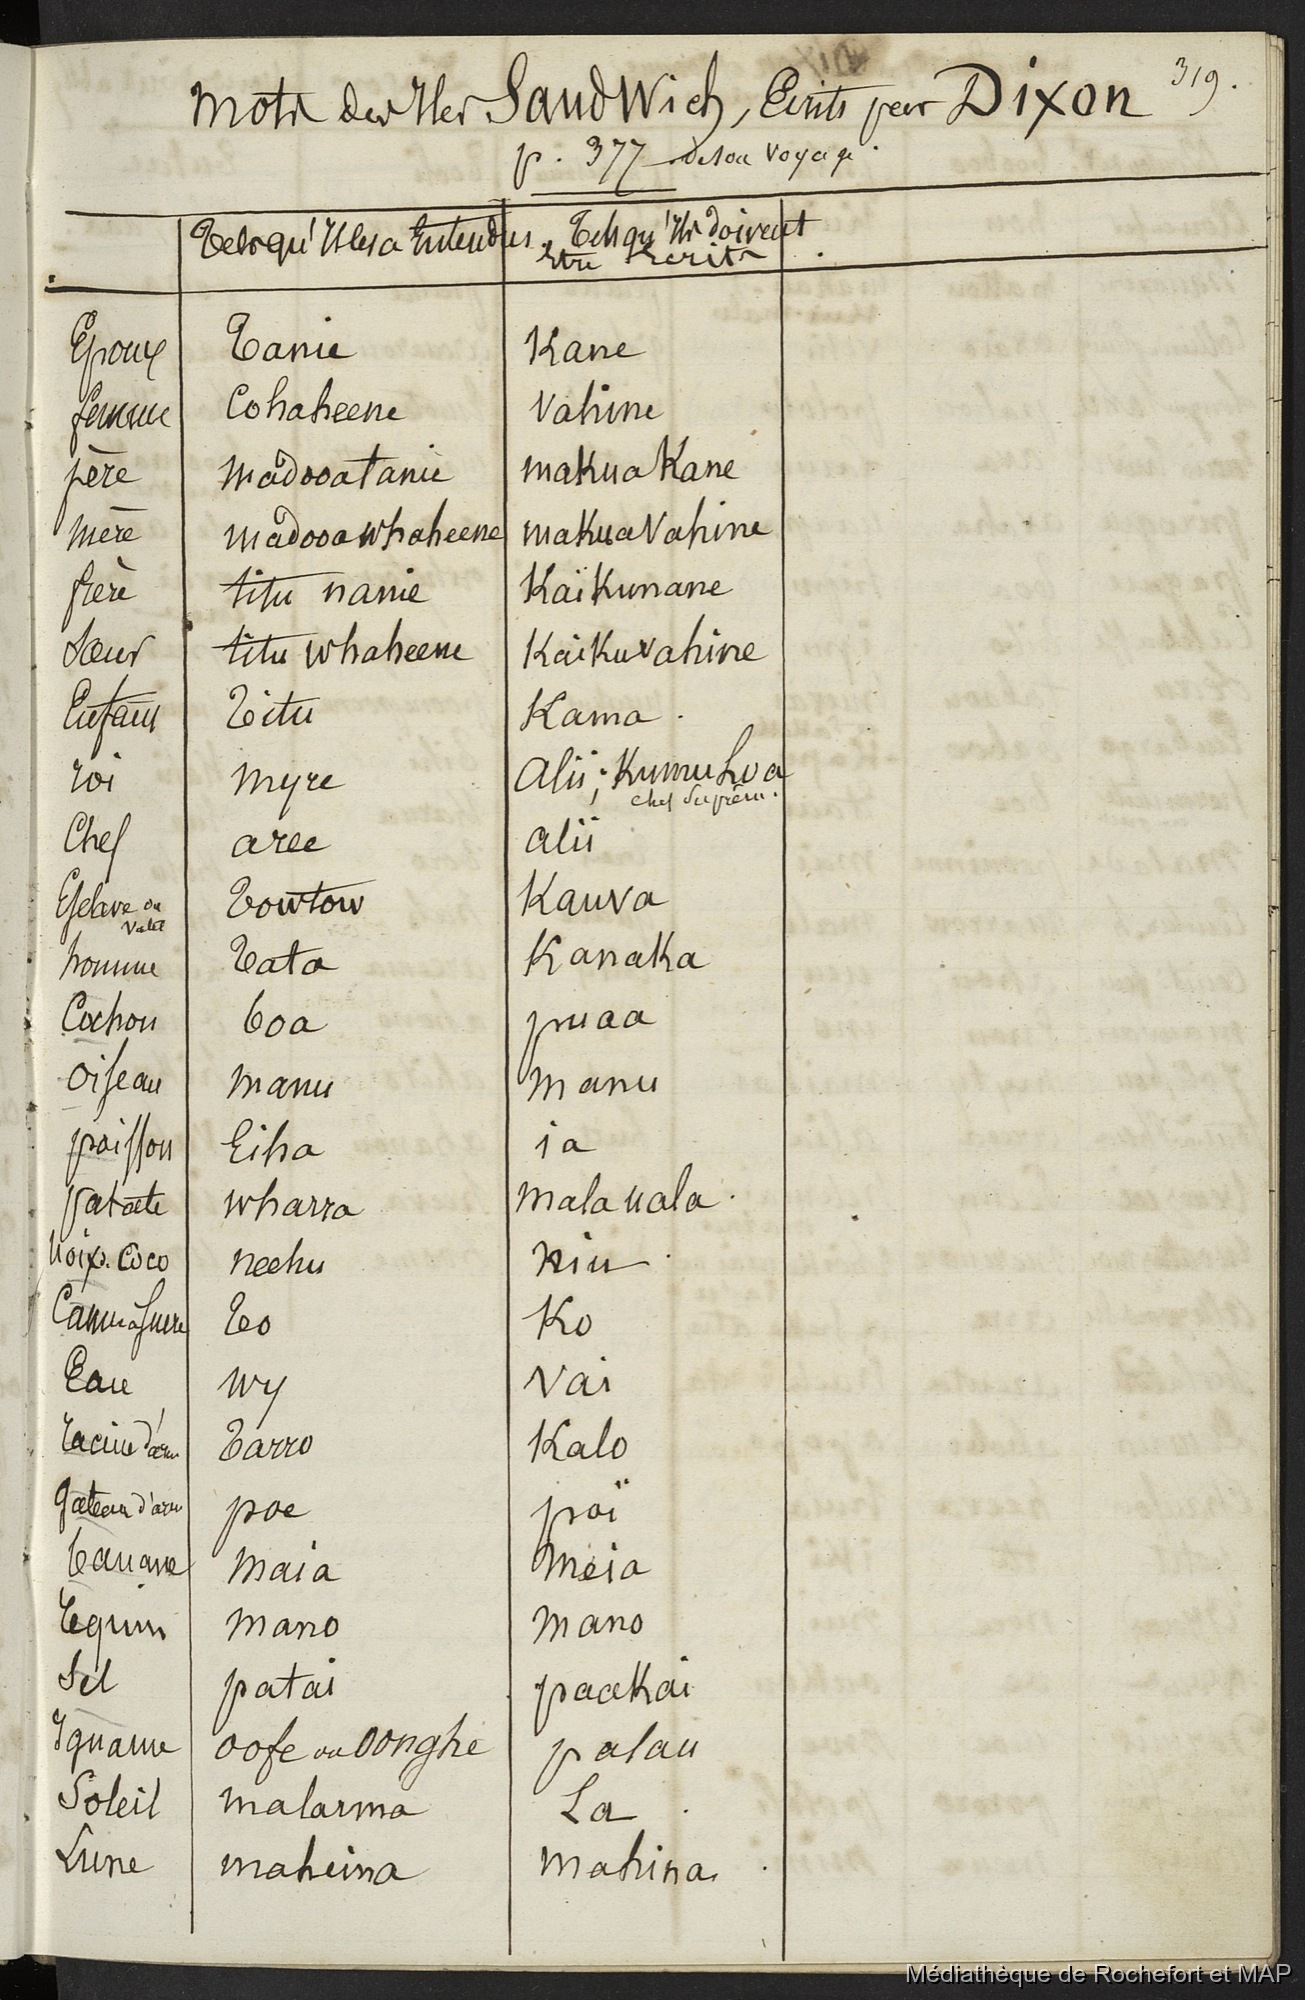 319.
Mots des Iles SandWich, Ecrits par Dixon
p. 377 de son Voyage.
Tels qu'Il les a Entendus. Tels qu'Ils doivent
Etre Ecrits
Epoux Tanie Kane
femme Cohaheene Vahine
père madooatanie makua Kane
mère madooawhaheene makuaVahine
frère titu nanie Kaïkunane
soeur titu whaheene Kaikuvahine
Enfant Titu Kama.
roi Myre Alii; Kumu hoa
chef suprême.
Chef aree alii
Esclave ou Towtow Kauva
Valet
homme Tata Kanaka
Cochon boa puaa
oiseau manu manu
poisson Eiha ia
patate wharra mala uala.
noix. Coco neehu niu.
Canne a Sucre To Ko
Eau wy Vai
racine d'arum Tarro Kalo
gateau d'arum poe poï
banane maia meia
requin mano mano
sel patai paakai
Igname oofe ou oonghe palau
Soleil malarma La.
Lune maheina mahina.
Médiathèque de Rochefort et MAP